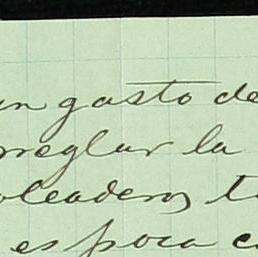 un gasto de
rreglar la
oleadero, t
es poca c